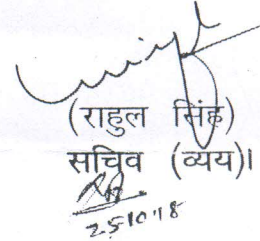 (राहुल सिंह)
सचिव (व्यय)।
25-10-18